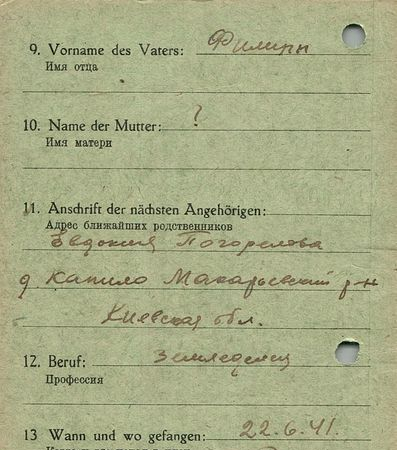 9. Vorname des Vaters: Филипп
Имя отца
10. Name der Mutter: ?
Имя матери
11. Anschrift der nächsten Angehörigen:
Адрес ближайших родственников
Евдокия Погорелова
д Капило Макарьевский р-н
Киевская обл.
12. Beruf: Земледелец
Профессия
13 Wann und wo gefangen: 22.6.41.